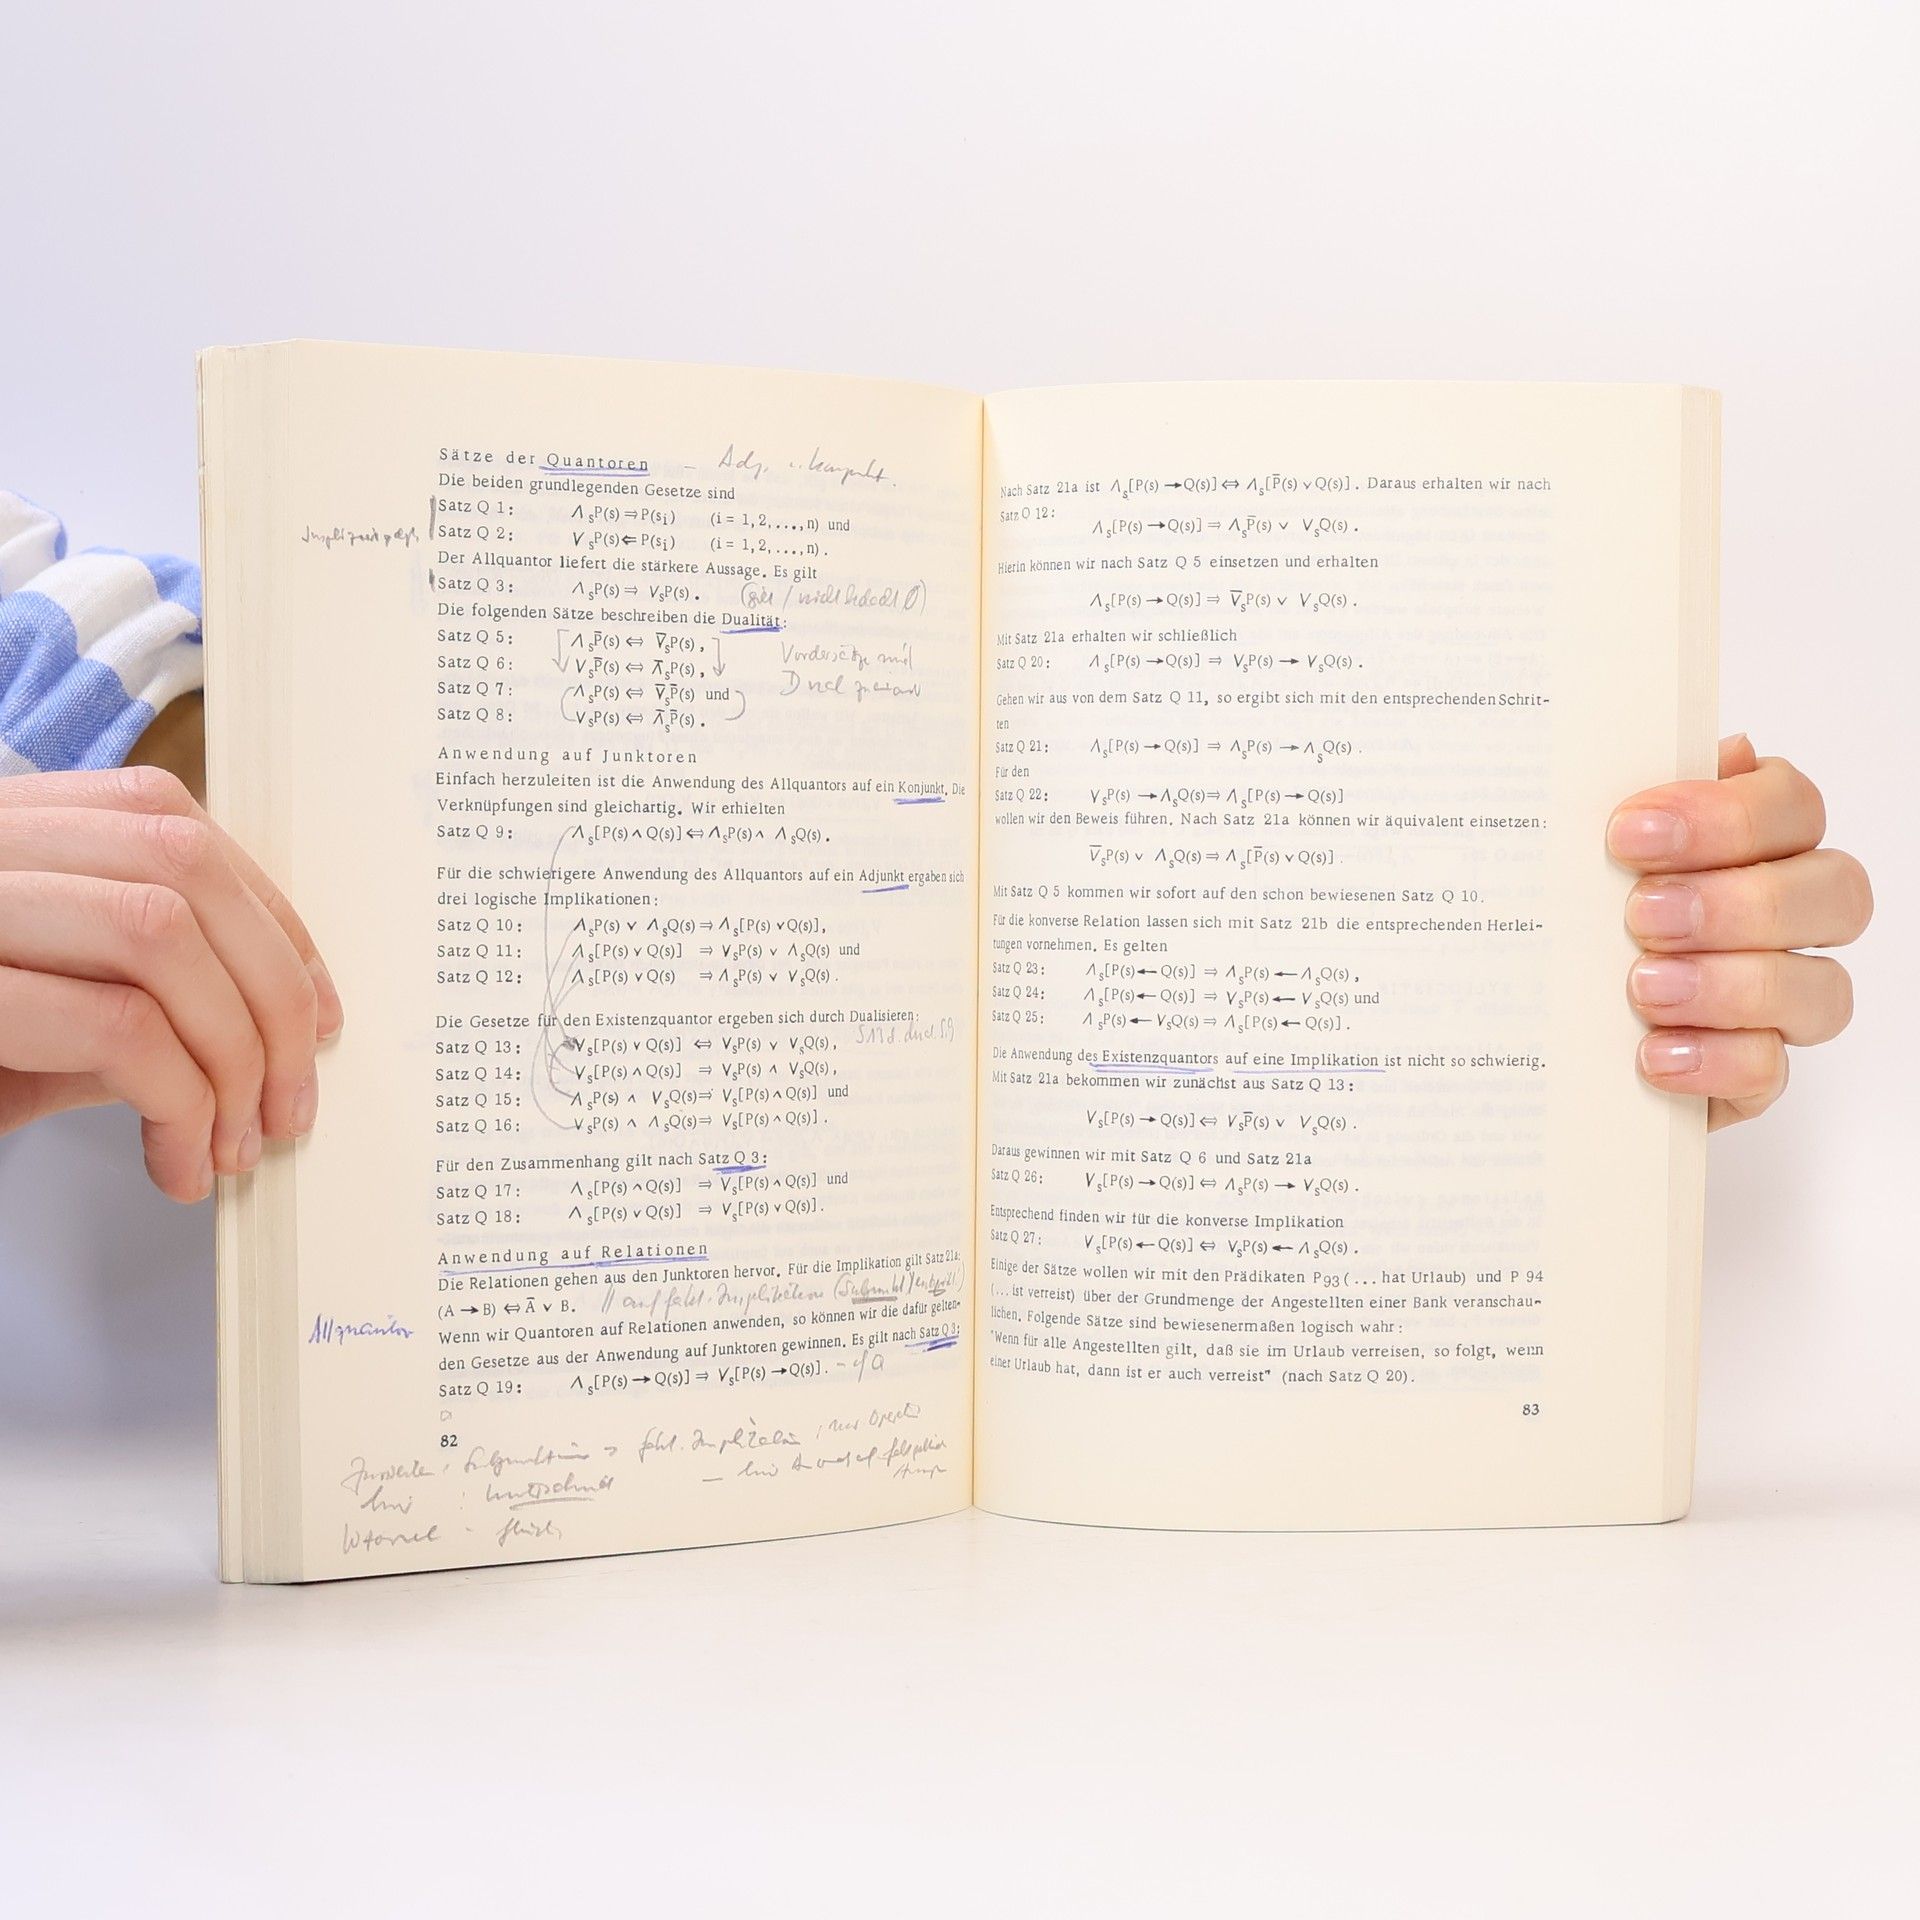 Sätze der Quantoren
Die beiden grundlegenden Gesetze sind
Satz Q 1: ΛₛP(s)⇒P(sᵢ) (i = 1,2,...,n) und
Satz Q 2: VₛP(s)⇐P(sᵢ) (i = 1,2,...,n).
Der Allquantor liefert die stärkere Aussage. Es gilt
Satz Q 3: ΛₛP(s)⇒ VₛP(s).
Die folgenden Sätze beschreiben die Dualität:
Satz Q 5: ΛₛP̅(s) ⇔ V̅ₛP(s),
Satz Q 6: VₛP̅(s) ⇔ Λ̅ₛP(s),
Vordersätze sind
Satz Q 7: ΛₛP(s) ⇔ V̅ₛP̅(s) und
Satz Q 8: VₛP(s) ⇔ Λ̅ₛP̅(s).
Anwendung auf Junktoren
Einfach herzuleiten ist die Anwendung des Allquantors auf ein Konjunkt. Die
Verknüpfungen sind gleichartig. Wir erhielten
Satz Q 9: Λₛ[P(s)∧Q(s)]⇔ΛₛP(s)∧ ΛₛQ(s).
Für die schwierigere Anwendung des Allquantors auf ein Adjunkt ergaben sich
drei logische Implikationen:
Satz Q 10: ΛₛP(s) ∨ ΛₛQ(s)⇒Λₛ[P(s)∨Q(s)],
Satz Q 11: Λₛ[P(s)∨Q(s)] ⇒ VₛP(s) ∨ ΛₛQ(s) und
Satz Q 12: Λₛ[P(s)∨Q(s) ⇒ΛₛP(s) ∨ VₛQ(s).
Die Gesetze für den Existenzquantor ergeben sich durch Dualisieren:
Satz Q 13: Vₛ[P(s)∨Q(s)] ⇔ VₛP(s) ∨ VₛQ(s),
Satz Q 14: Vₛ[P(s)∧Q(s)] ⇒ VₛP(s) ∧ VₛQ(s),
Satz Q 15: ΛₛP(s) ∧ VₛQ(s)⇒ Vₛ[P(s)∧Q(s)] und
Satz Q 16: VₛP(s) ∧ ΛₛQ(s)⇒ Vₛ[P(s)∧Q(s)].
Für den Zusammenhang gilt nach Satz Q 3:
Satz Q 17: Λₛ[P(s)∧Q(s)] ⇒ Vₛ[P(s)∧Q(s)] und
Satz Q 18: Λₛ[P(s)∨Q(s)] ⇒ Vₛ[P(s)∨Q(s)].
Anwendung auf Relationen
Die Relationen gehen aus den Junktoren hervor. Für die Implikation gilt Satz 21a:
(A → B) ⇔ A̅ ∨ B.
Allquantor
Wenn wir Quantoren auf Relationen anwenden, so können wir die dafür gelten-
den Gesetze aus der Anwendung auf Junktoren gewinnen. Es gilt nach Satz Q 3:
Satz Q 19: Λₛ[P(s)→Q(s)] ⇒ Vₛ[P(s)→Q(s)].
82
Nach Satz 21a ist Λₛ[P(s)→Q(s)]⇔ Λₛ[P̅(s)∨Q(s)]. Daraus erhalten wir nach
Satz Q 12:
Λₛ[P(s)→Q(s)]⇒ ΛₛP̅(s) ∨ VₛQ(s).
Hierin können wir nach Satz Q 5 einsetzen und erhalten
Λₛ[P(s)→Q(s)]⇒ V̅ₛP(s) ∨ VₛQ(s).
Mit Satz 21a erhalten wir schließlich
Satz Q 20: Λₛ[P(s)→Q(s)] ⇒ VₛP(s) → VₛQ(s).
Gehen wir aus von dem Satz Q 11, so ergibt sich mit den entsprechenden Schrit-
ten
Satz Q 21: Λₛ[P(s)→Q(s)] ⇒ ΛₛP(s) → ΛₛQ(s).
Für den
Satz Q 22: VₛP(s) →ΛₛQ(s)⇒ Λₛ[P(s)→Q(s)]
wollen wir den Beweis führen. Nach Satz 21a können wir äquivalent einsetzen:
V̅ₛP(s) ∨ ΛₛQ(s)⇒Λₛ[P̅(s)∨Q(s)].
Mit Satz Q 5 kommen wir sofort auf den schon bewiesenen Satz Q 10.
Für die konverse Relation lassen sich mit Satz 21b die entsprechenden Herlei-
tungen vornehmen. Es gelten
Satz Q 23: Λₛ[P(s)←Q(s)] ⇒ ΛₛP(s)←ΛₛQ(s),
Satz Q 24: Λₛ[P(s)←Q(s)] ⇒ VₛP(s)← VₛQ(s) und
Satz Q 25: ΛₛP(s)←VₛQ(s)⇒ Λₛ[P(s)←Q(s)].
Die Anwendung des Existenzquantors auf eine Implikation ist nicht so schwierig.
Mit Satz 21a bekommen wir zunächst aus Satz Q 13:
Vₛ[P(s)→Q(s)]⇔ VₛP̅(s) ∨ VₛQ(s).
Daraus gewinnen wir mit Satz Q 6 und Satz 21a
Satz Q 26: Vₛ[P(s)→Q(s)]⇔ ΛₛP(s) → VₛQ(s).
Entsprechend finden wir für die konverse Implikation
Satz Q 27: Vₛ[P(s)←Q(s)]⇔ VₛP(s)← ΛₛQ(s).
Einige der Sätze wollen wir mit den Prädikaten P93 (... hat Urlaub) und P 94
(... ist verreist) über der Grundmenge der Angestellten einer Bank veranschau-
lichen. Folgende Sätze sind bewiesenermaßen logisch wahr:
"Wenn für alle Angestellten gilt, daß sie im Urlaub verreisen, so folgt, wenn
einer Urlaub hat, dann ist er auch verreist" (nach Satz Q 20).
83